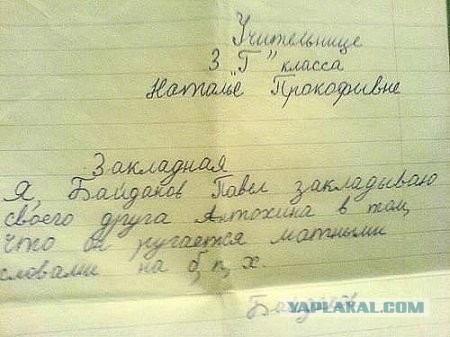 Учительнице
3 "Г" класса
Наталье Прокофивне
Закладная
Я, Байдаков Павел закладываю
своего друга Антохина в том,
что он ругается матными
словами на б, п, х.
YAPLAKAL.COM